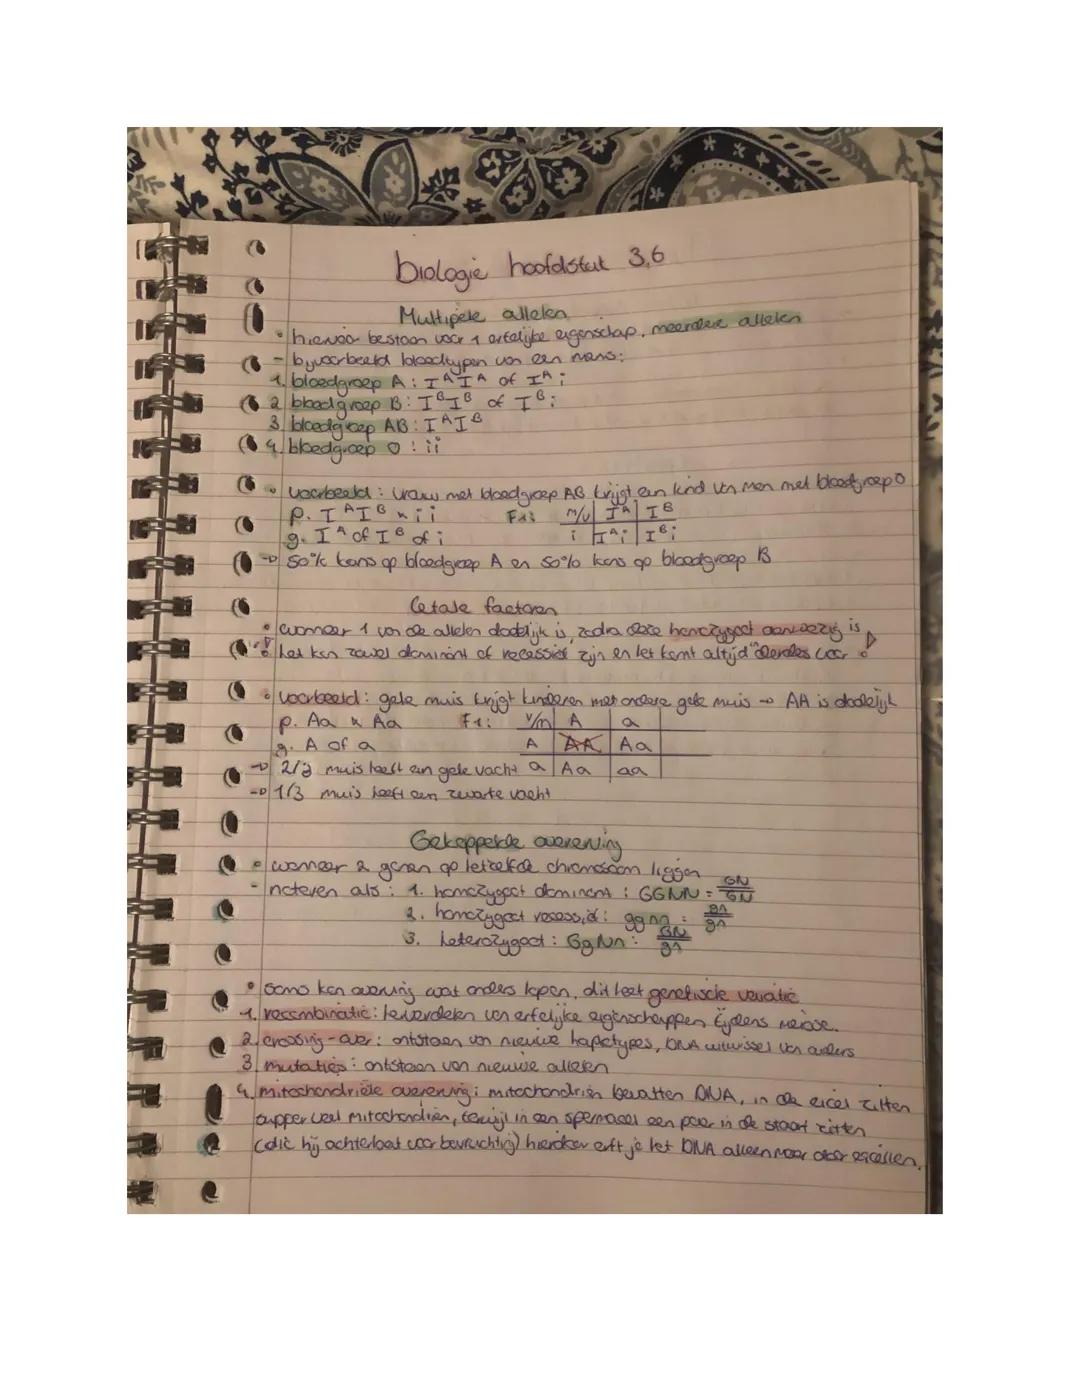 biologie hoofdstuk 3,6
Multipele allelen
• hiervoor bestaan voor 1 erfelijke eigenschap, meerdere allelen
- bijvoorbeeld bloedtypen van een mens:
1. bloedgroep A: I^A I^A of I^A i
2 bloedgroep B: I^B I^B of I^B i
3. bloedgroep AB: I^A I^B
4. bloedgroep O: ii
• voorbeeld: vrouw met bloedgroep AB krijgt een kind van man met bloedgroep O
p. I^A I^B x ii F1: m/v | I^A | I^B
g. I^A of I^B of i i | I^A i | I^B i
→ 50% kans op bloedgroep A en 50% kans op bloedgroep B
letale factoren
• wanneer 1 van de allelen dodelijk is, zodra deze homozygoot aanwezig is
! • het kan zowel dominant of recessief zijn en het komt altijd voor !
• voorbeeld: gele muis krijgt kinderen met andere gele muis → AA is dodelijk
p. Aa x Aa F1: v/m | A | a
g. A of a A | AA | Aa
→ 2/3 muis heeft een gele vacht a | Aa | aa
→ 1/3 muis heeft een zwarte vacht
Gekoppelde overerving
• wanneer 2 genen op hetzelfde chromosoom liggen
- noteren als: 1. homozygoot dominant: GGNN = GN/GN
2. homozygoot recessief: ggnn: gn/gn
3. heterozygoot: GgNn: GN/gn
• Soms kan overerving wat anders lopen, dit heet genetische variatie
1. recombinatie: herverdelen van erfelijke eigenschappen tijdens meiose.
2. crossing-over: ontstaan van nieuwe haplotypes, DNA uitwissel van ouders
3 mutaties: ontstaan van nieuwe allelen
4. mitochondriële overerving: mitochondriën bevatten DNA, in de eicel zitten
supper veel mitochondriën, terwijl in een spermacel een paar in de staart zitten
(die hij achterlaat voor bevruchting) hierdoor erft je het DNA alleen maar door eicellen.